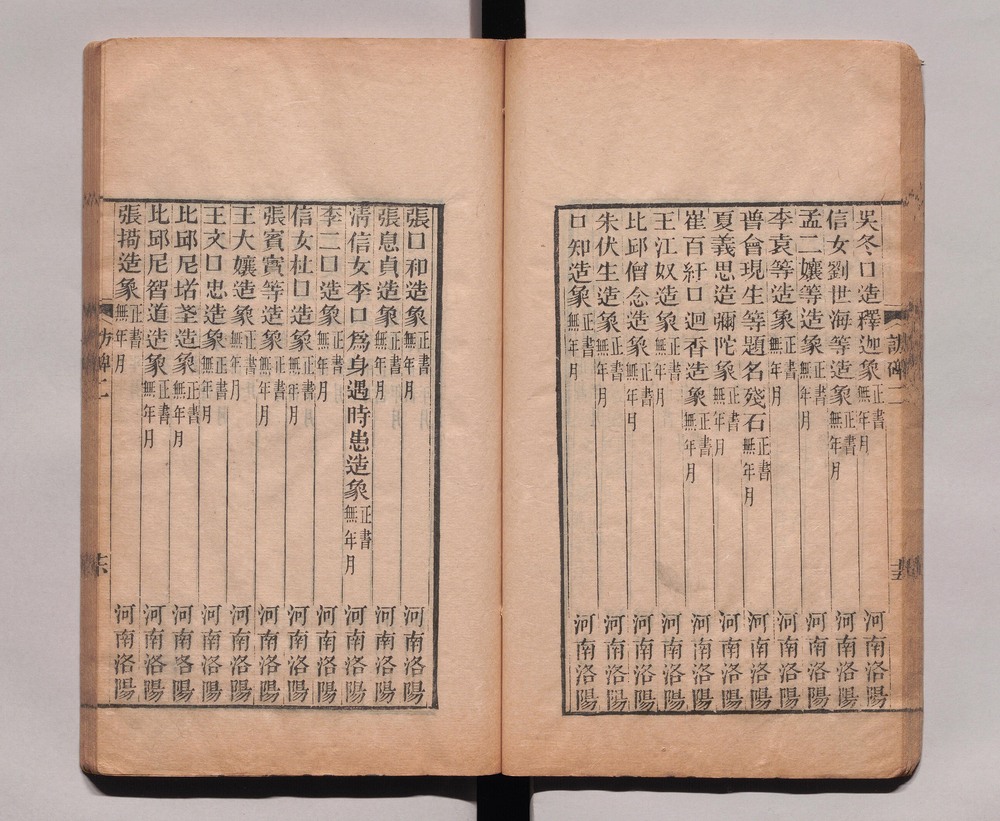 吳冬口造釋迦象正書無年月 河南洛陽
信女劉世海等造象正書無年月 河南洛陽
孟二孃等造象正書無年月 河南洛陽
李袁等造象正書無年月 河南洛陽
普會現生等題名殘石正書無年月 河南洛陽
夏義思造彌陀象正書無年月 河南洛陽
崔百紆口迴香造象正書無年月 河南洛陽
王江奴造象正書無年月 河南洛陽
比邱僧念造象正書無年月 河南洛陽
朱伏生造象正書無年月 河南洛陽
口知造象正書無年月 河南洛陽
張口和造象正書無年月 河南洛陽
張息貞造象正書無年月 河南洛陽
淸信女李口爲身遇時患造象正書無年月 河南洛陽
李二口造象正書無年月 河南洛陽
信女杜口造象正書無年月 河南洛陽
張賓實等造象正書無年月 河南洛陽
王大孃造象正書無年月 河南洛陽
王文口忠造象正書無年月 河南洛陽
比邱尼㙮荃造象正書無年月 河南洛陽
比邱尼智道造象正書無年月 河南洛陽
張造象正書無年月 河南洛陽